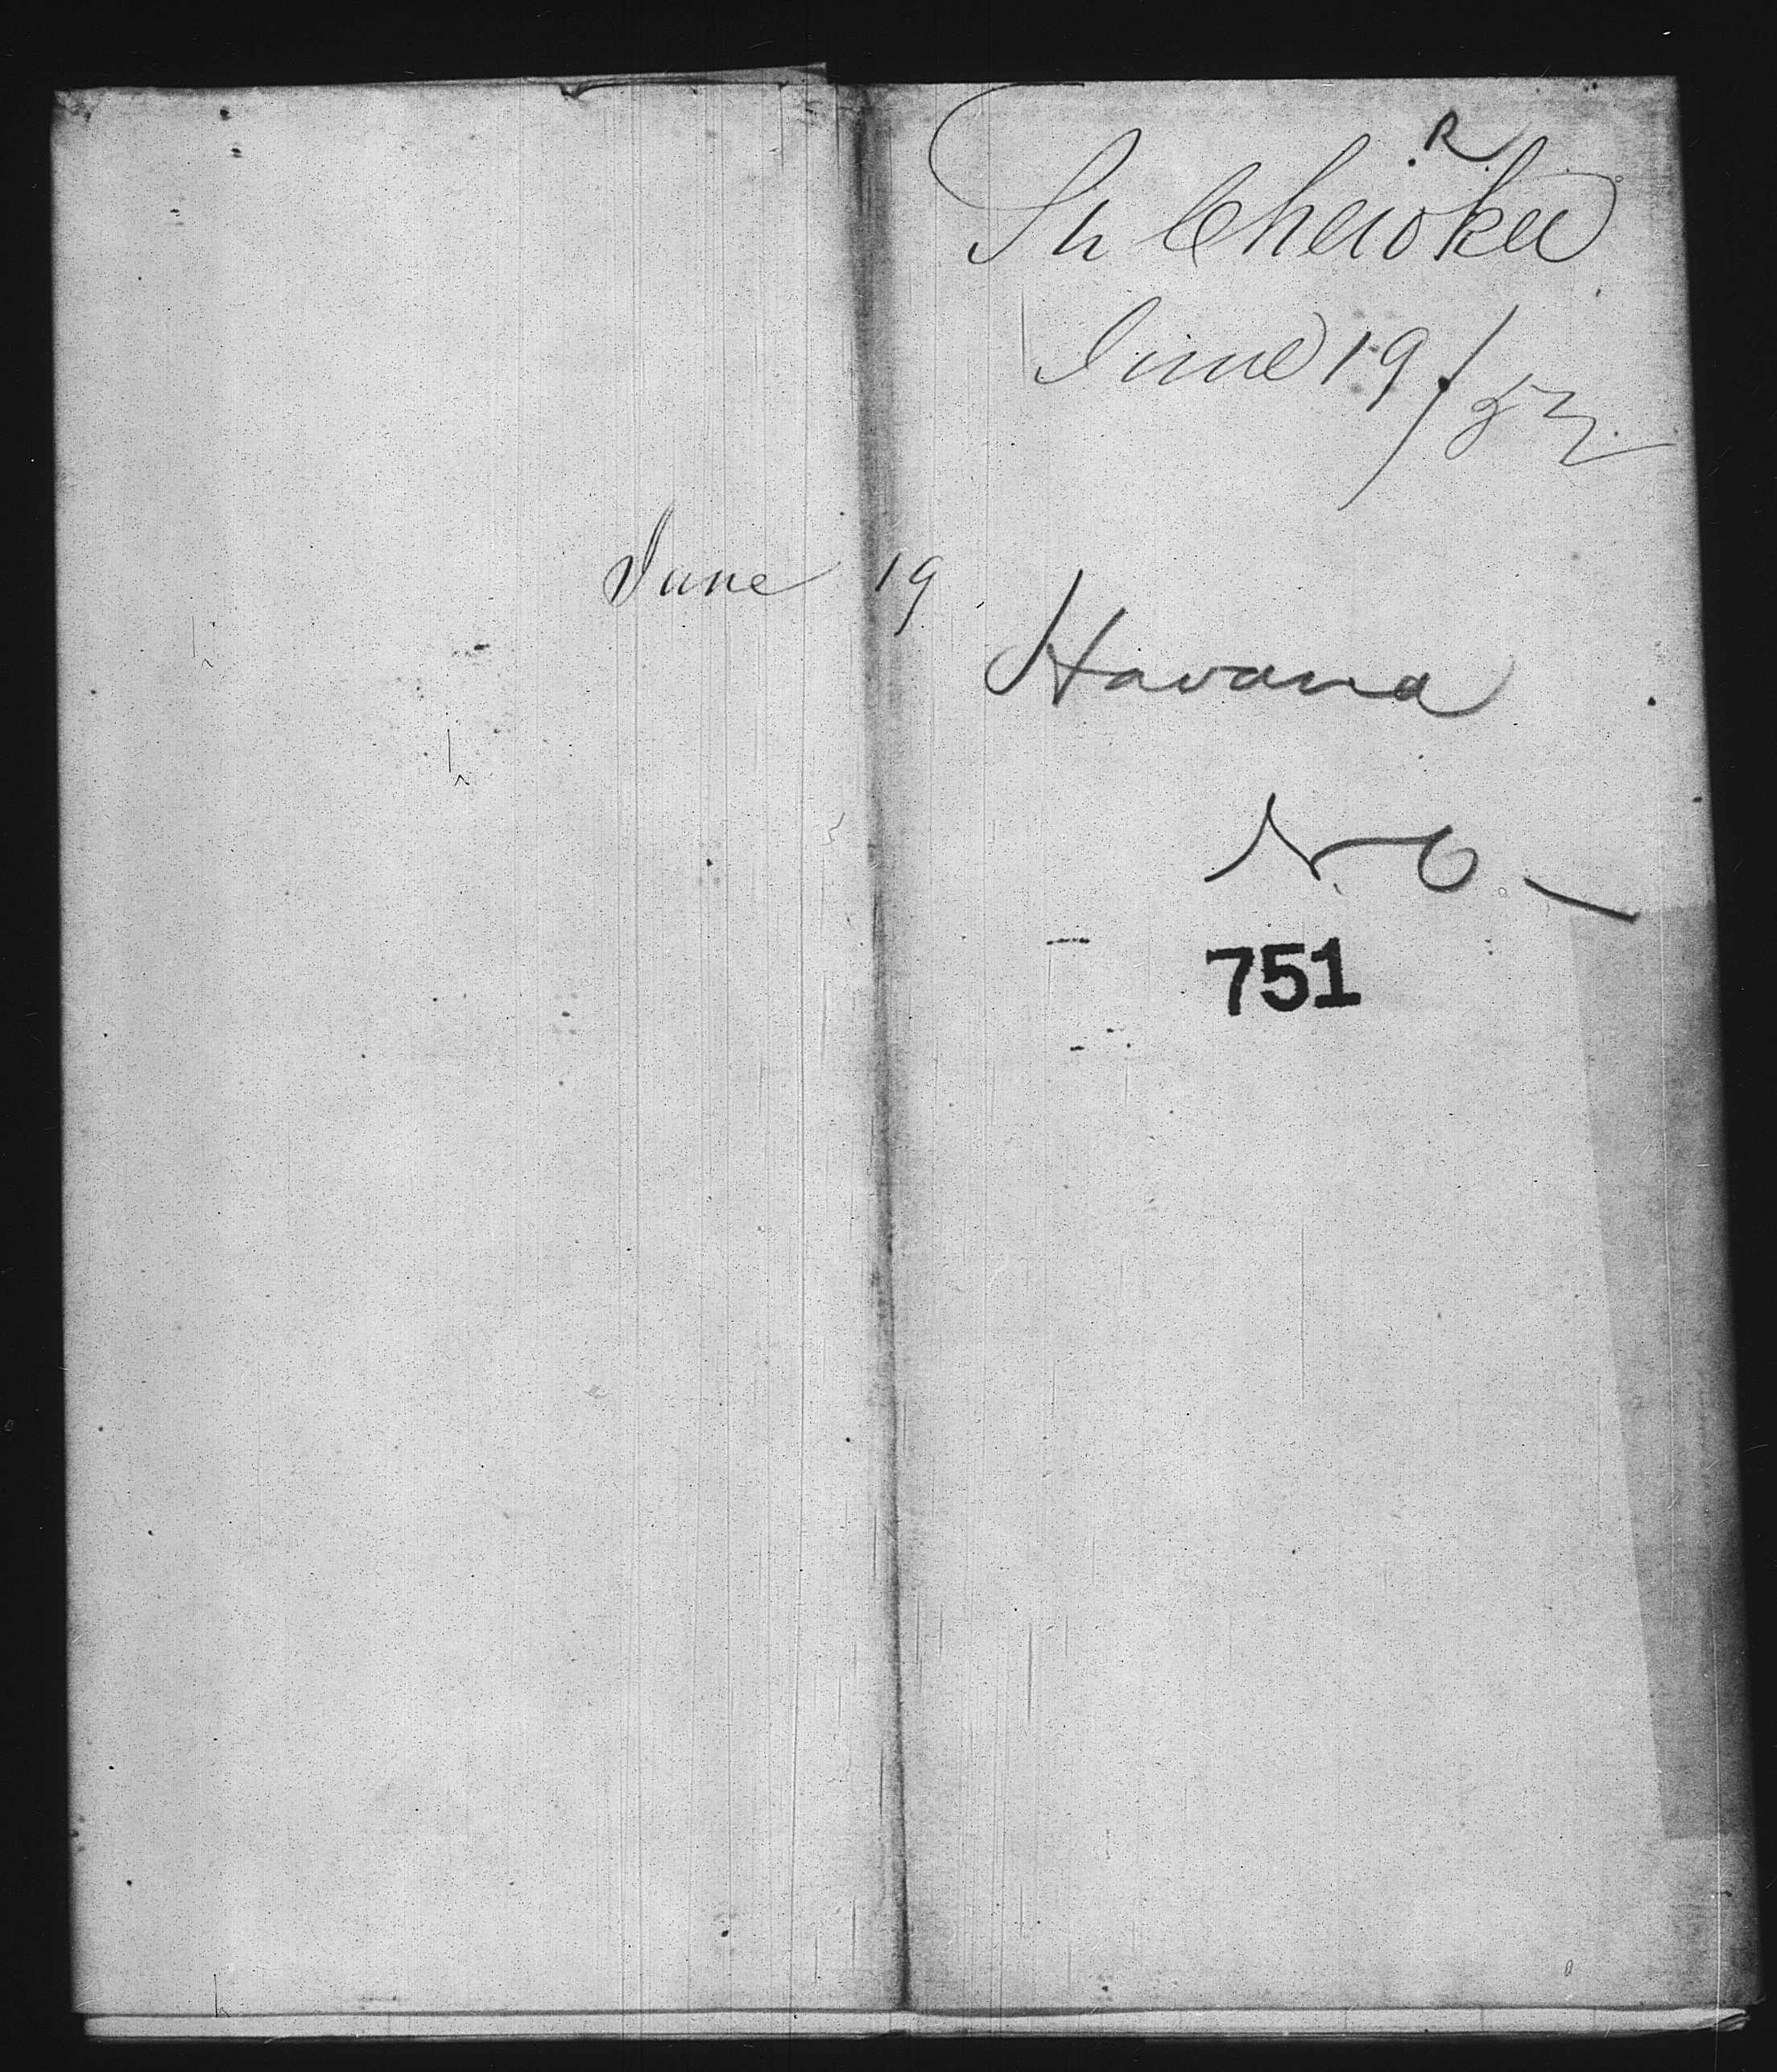 R
Str Cherokee
June 19/52
June 19
Havana
N.O.
751